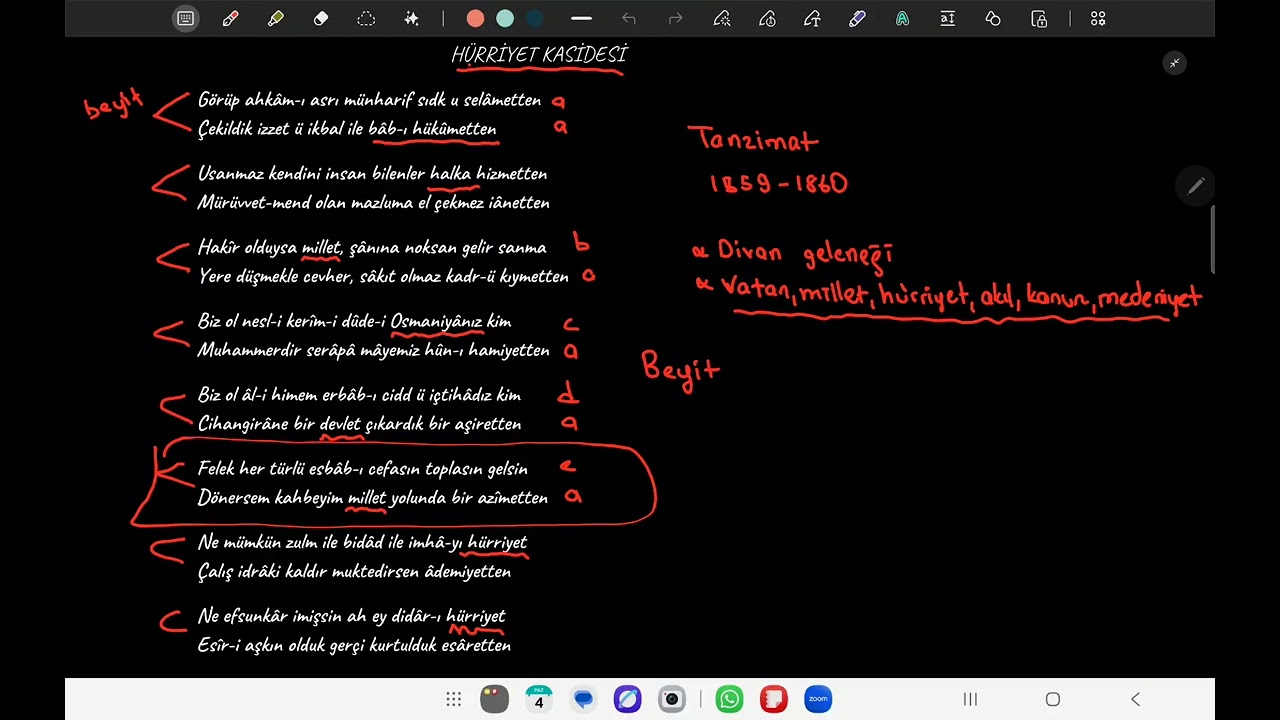 HÜRRİYET KASİDESİ
beyit
Görüp ahkâm-ı asrı münharif sıdk u selâmetten a
Çekildik izzet ü ikbal ile bâb-ı hükûmetten a
Usanmaz kendini insan bilenler halka hizmetten
Mürüvvet-mend olan mazluma el çekmez iânetten
Hakîr olduysa millet, şânına noksan gelir sanma b
Yere düşmekle cevher, sâkıt olmaz kadr-ü kıymetten a
Biz ol nesl-i kerîm-i dûde-i Osmaniyânız kim c
Muhammerdir serâpâ mâyemiz hûn-ı hamiyetten a
Biz ol âl-i himem erbâb-ı cidd ü içtihâdız kim d
Cihangirâne bir devlet çıkardık bir aşiretten a
Felek her türlü esbâb-ı cefasın toplasın gelsin e
Dönersem kahbeyim millet yolunda bir azîmetten a
Ne mümkün zulm ile bidâd ile imhâ-yı hürriyet
Çalış idrâki kaldır muktedirsen âdemiyetten
Ne efsunkâr imişsin ah ey didâr-ı hürriyet
Esîr-i aşkın olduk gerçi kurtulduk esâretten
Tanzimat
1859-1860
Divan geleneği
Vatan, millet, hürriyet, akıl, kanun, medeniyet
Beyit
PAZ
4
zoom